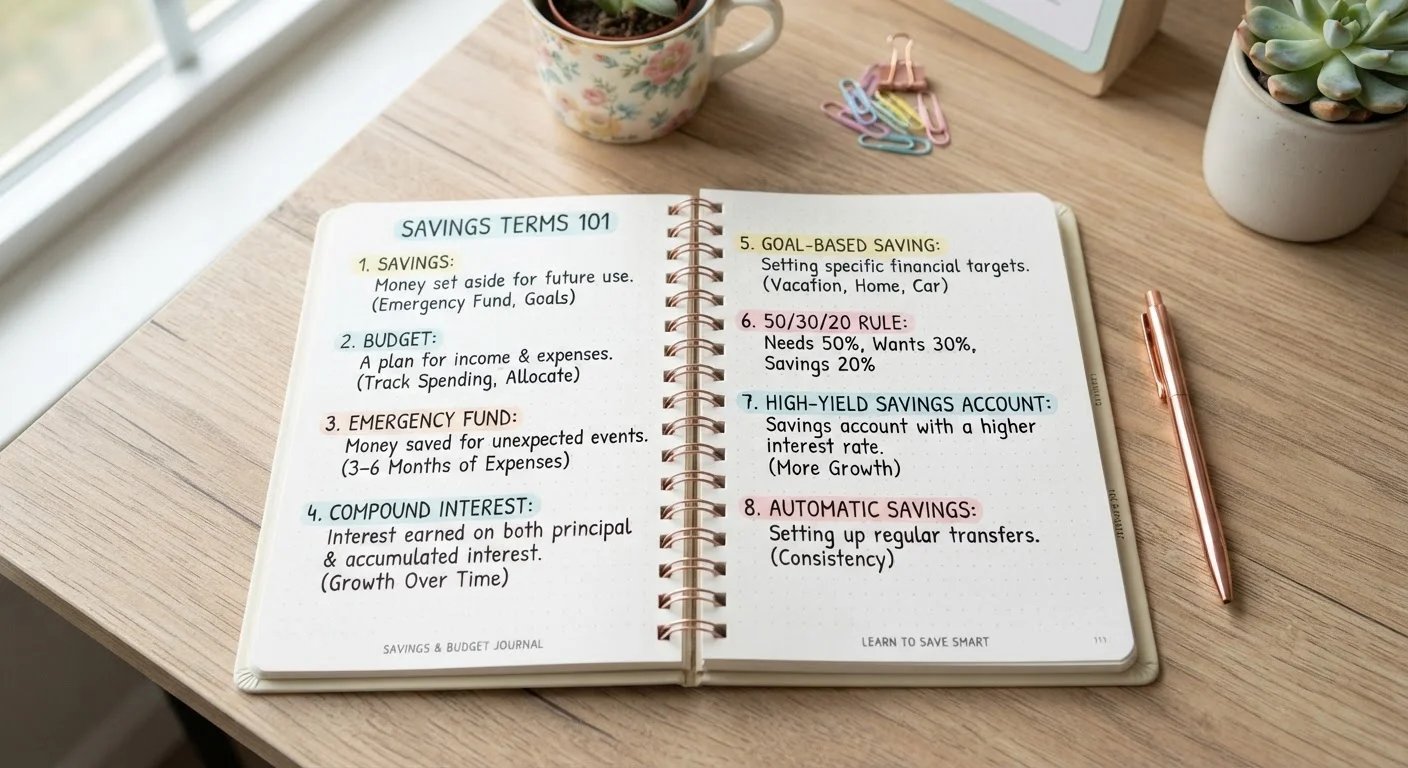 SAVINGS TERMS 101
1. SAVINGS:
Money set aside for future use.
(Emergency Fund, Goals)
2. BUDGET:
A plan for income & expenses.
(Track Spending, Allocate)
3. EMERGENCY FUND:
Money saved for unexpected events.
(3–6 Months of Expenses)
4. COMPOUND INTEREST:
Interest earned on both principal
& accumulated interest.
(Growth Over Time)
SAVINGS & BUDGET JOURNAL
5. GOAL-BASED SAVING:
Setting specific financial targets.
(Vacation, Home, Car)
6. 50/30/20 RULE:
Needs 50%, Wants 30%,
Savings 20%
7. HIGH-YIELD SAVINGS ACCOUNT:
Savings account with a higher
interest rate.
(More Growth)
8. AUTOMATIC SAVINGS:
Setting up regular transfers.
(Consistency)
LEARN TO SAVE SMART